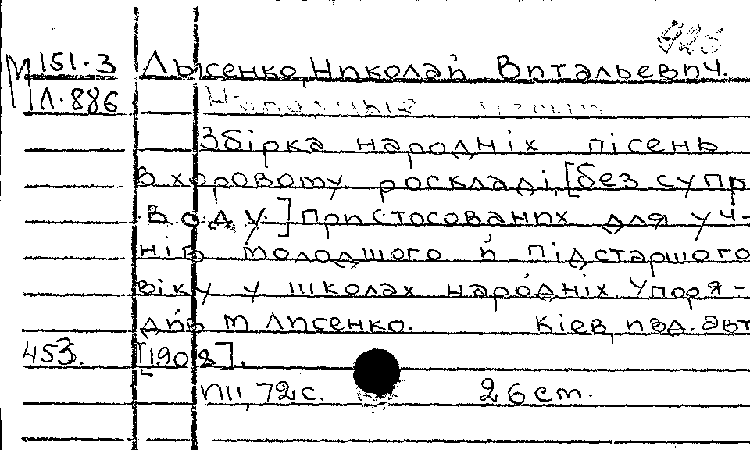 М 151.3 Лысенко, Николай Витальевич.
Л.886
Збірка народніх пісень
в хоровому роскладі, [без супр
воду] пристосованих для уч-
нів молодшого й підстаршого
віку у школах народніх. Упоря-
див М. Лисенко. Кіев, изд. авт
453. [1908].
72 с. 26 cm.